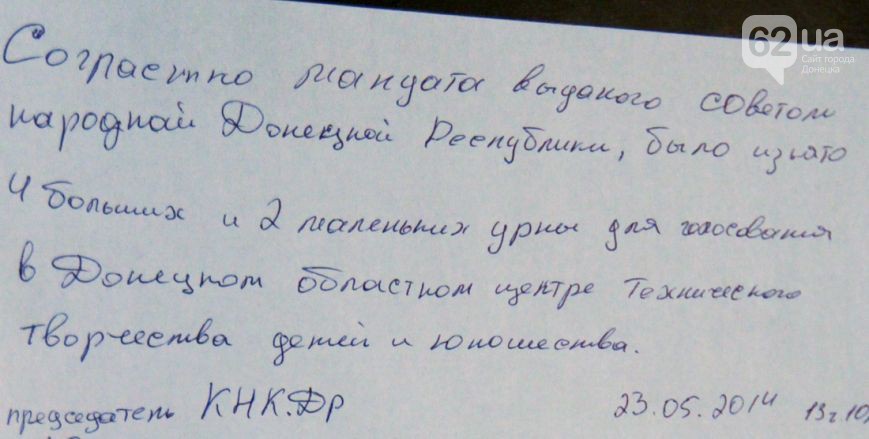 62.ua
Сайт города
Донецка
Согластно мандата выданого советом
народнай Донецкой Республики, было изьято
4 больших и 2 маленьких урны для голосования
в Донецком областном центре Технического
творчества детей и юношества.
председатель КНК.ДР 23.05.2014 13ч.10